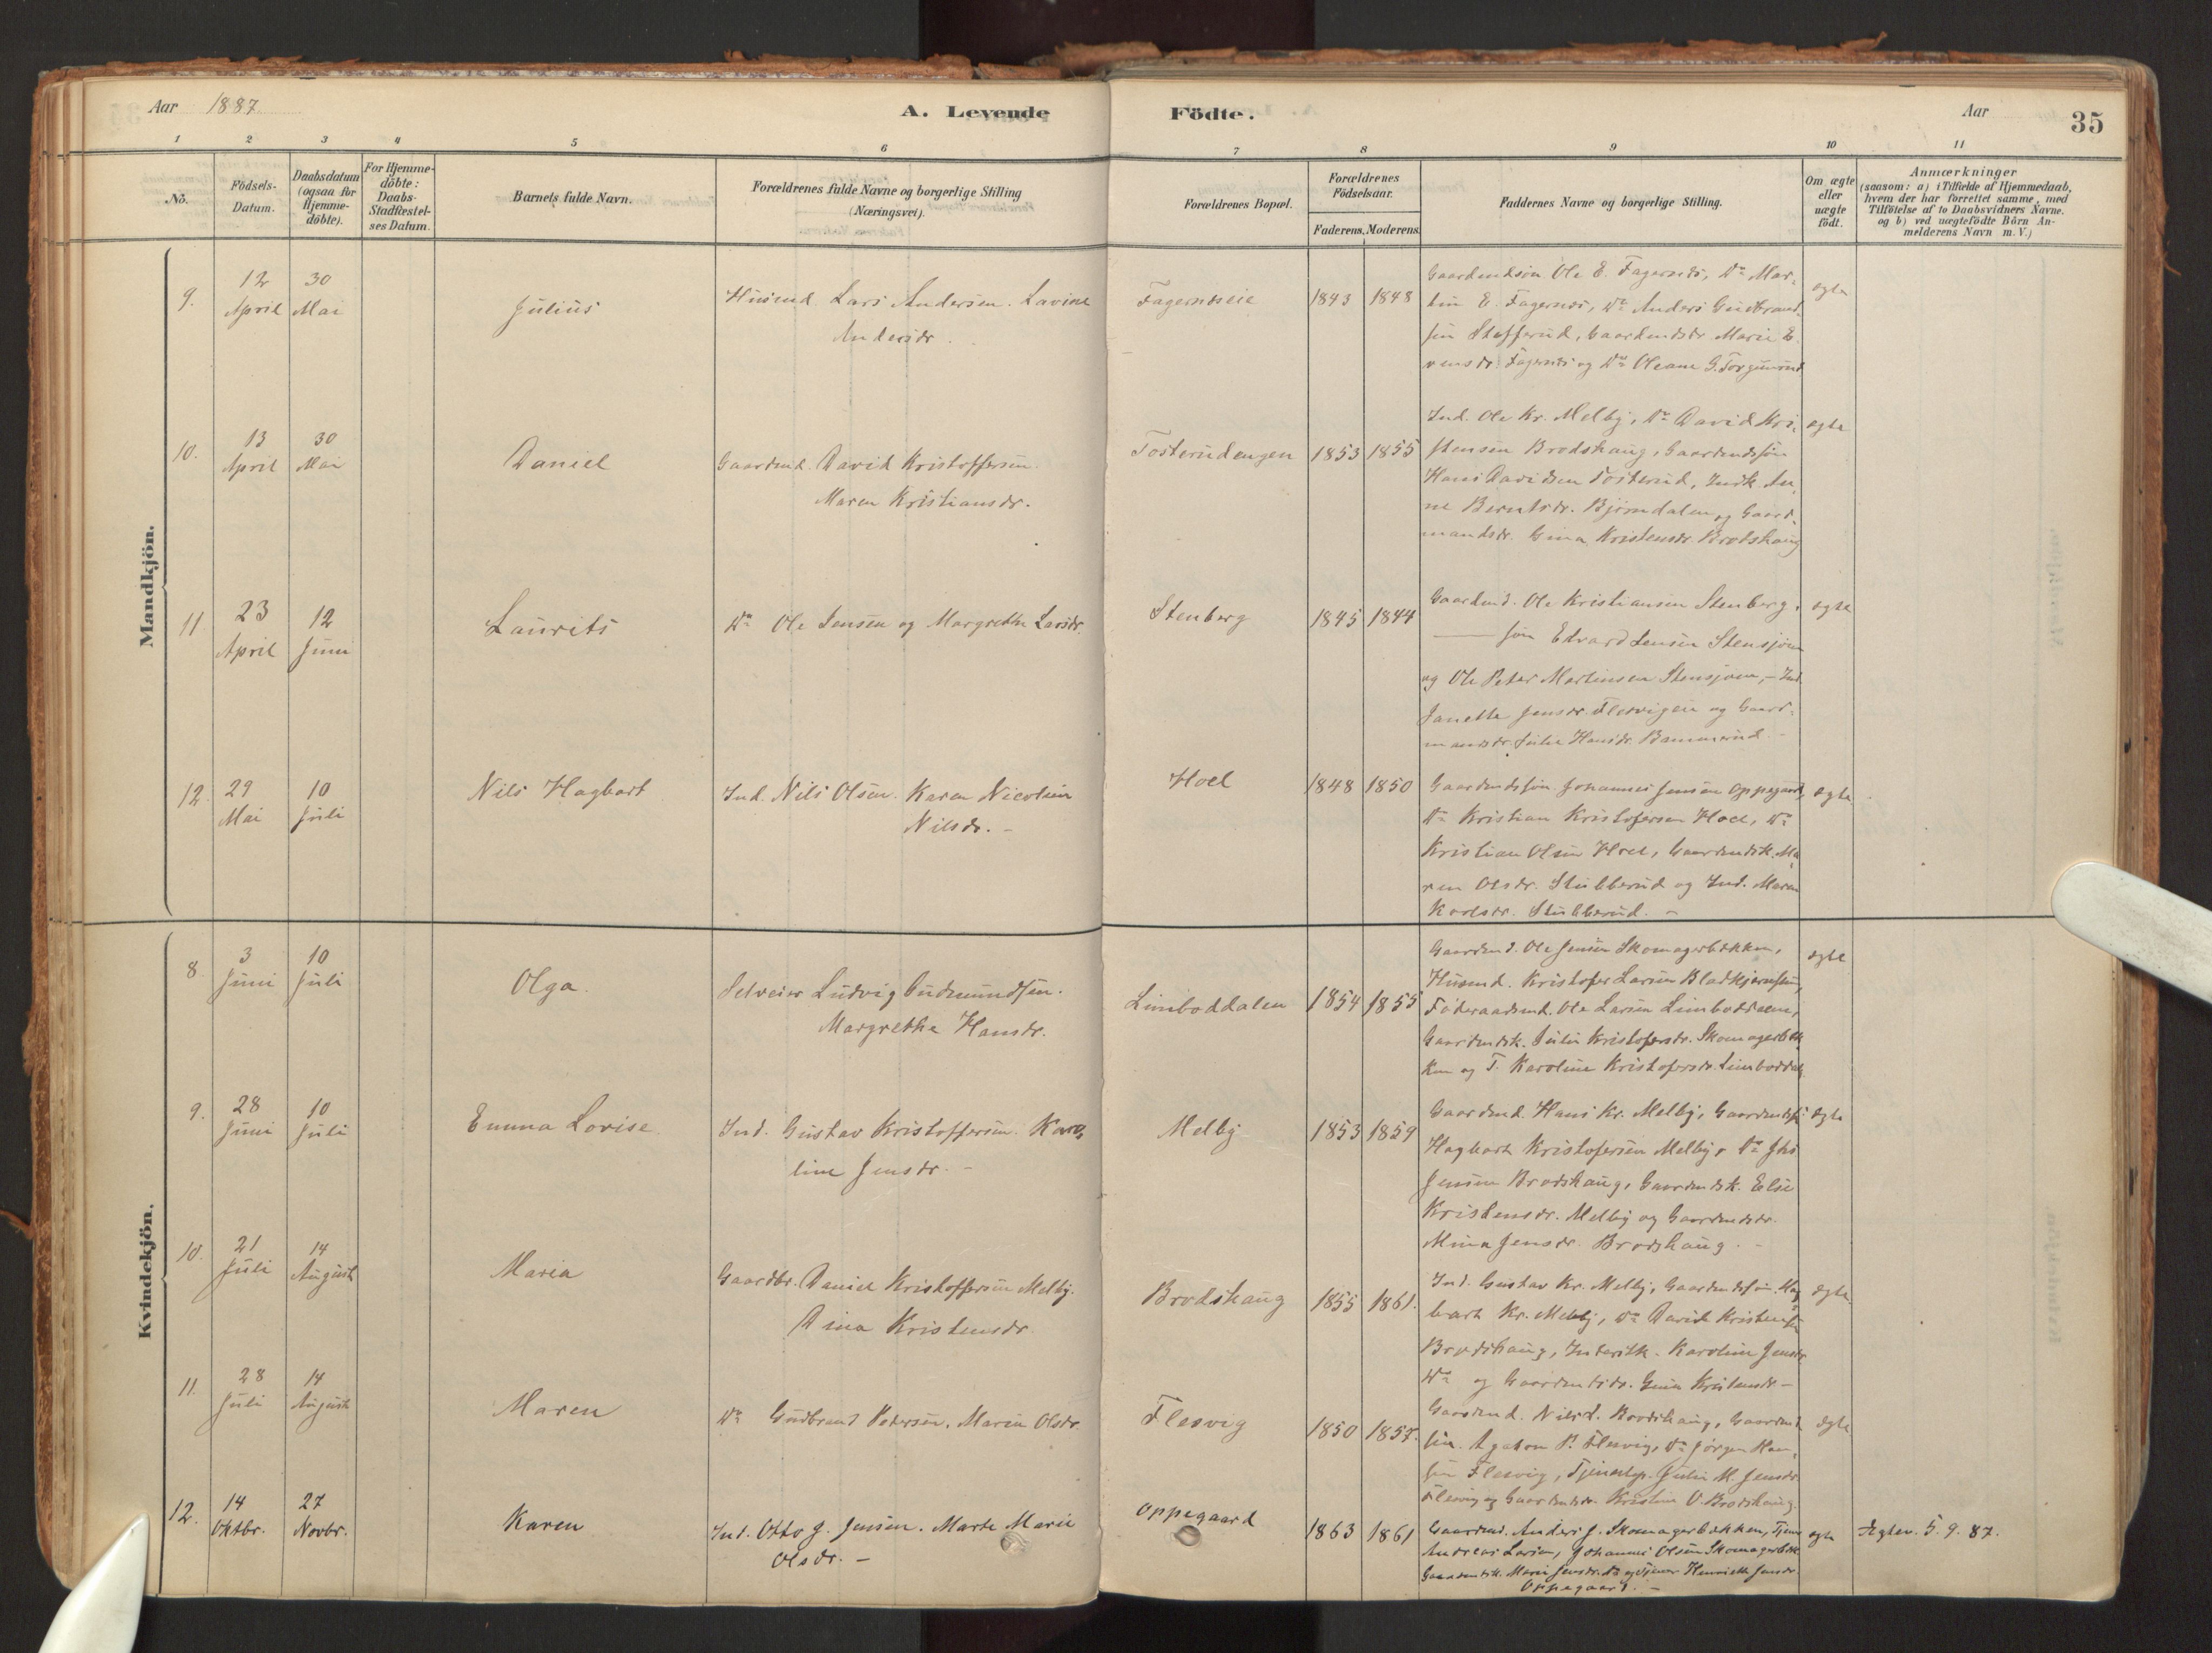 Aar 1887.
A. Levende
Födte.
Aar
35
1
2
3
4
5
6
7
8
9
10
11
No.
Födsels-
Datum.
Daabsdatum
(ogsaa for
Hjemme-
döbte).
For Hjemme-
döbte:
Daabs-
Stadfæstel-
ses Datum.
Barnets fulde Navn.
Forældrenes fulde Navne og borgerlige Stilling
(Næringsvei).
Forældrenes Bopæl.
Forældrenes
Födselsaar.
Faderens. Moderens.
Faddernes Navne og borgerlige Stilling.
Om ægte
eller
uægte
födt.
Anmærkninger
(saasom: a) i Tilfælde af Hjemmedaab,
hvem der har forrettet samme, med
Tilföielse af to Daabsvidners Navne.
og b) ved uægtefödte Börn An-
melderens Navn m. V.)
Mandkjön.
9.
12
April
30
Mai
Julius
Husmd. Lars Andersen. Lavine
Andersdr.
Fagernæseie
1843
1848
Gaardmdsøn Ole E. Fagernæs, Do Mar-
tin E. Fagernæs, Do Anders Gudbrand-
sen Stefferud, Gaardmdsdr. Marie E-
vensdr. Fagernæs og Do Oleane G.
ægte
10.
13
April
30
Mai
Daniel
Gaardmd. David Kristoffersen.
Maren Kristiansdr.
Tosterudengen
1853
1855
Ind. Ole Kr. Melby, Do David Kri-
stensen Brodshaug, Gaardmdsøn
Hans Davidsen Tosterud, Indk. An-
ne Berntsdr. Bjørndalen og Gaard-
mandsdr. Gina Kristensdr. Brodshaug
ægte
11.
23
April
12
Juni
Laurits
Do Ole Jensen og Margrethe Larsdr.
Stenberg
1845
1844
Gaardmd. Ole Kristiansen Stenberg,
— søn Edvard Jensen Stensjøen
og Ole Peter Martinsen Stensjøen, - Ind.
Janette Jensdr. Flesvigeie og Gaard-
mandsdr. Julie Hansdr. Bammerud. -
ægte
12.
29
Mai
10
Juli
Nils Hagbart
Ind. Nils Olsen. Karen Nicoline
Nilsdr. -
Hoel
1848
1850
Gaardmdssøn Johannes Jensen Oppegaard,
Do Kristian Kristofersen Hoel, Do
Kristian Olsen Hoel, Gaardmdsk. Ma-
ren Olsdr. Stubberud og Ind. Maren
Karlsdr. Stubberud. -
ægte
Kvindekjön.
8
3
Juni
10
Juli
Olga.
Selveier Ludvig Gudmundsen.
Margrethe Hansdr.
Limboddalen
1854
1855
Gaardmd. Ole Jensen Skomagerbækken,
Husmd. Kristofer Larsen
Føderaadsmd. Ole Larsen Limboddalen,
Gaardmdsk. Julie Kristofersdr. Skomagerbæk-
ken og T. Karoline Kristofersdr. Limboddal.
ægte
9.
28
Juni
10
Juli
Emma Lovise
Ind. Gustav Kristoffersen. Karo-
line Jensdr. -
Melby
1853
1859
Gaardmd. Hans Kr. Melby, Gaardmdsøn
Hagbart Kristofersen Melby, Do Jhs
Jensen Brodshaug, Gaardmdsk. Else
Kristensdr. Melby og Gaardmdsdr.
Mina Jensdr. Brodshaug. -
ægte
10.
21
Juli
14
August
Maria
Gaardbr. Daniel Kristoffersen Melby.
Dina Kristensdr.
Brodshaug
1855
1861.
Ind. Gustav Kr. Melby, Gaardmdsøn Hag-
bart Kr. Melby, Do David Kristensen
Brodshaug, Inderstk. Karoline Jensdr.
Do og Gaardmdsdr. Gina Kristensdr -
ægte.
11.
28
Juli
14
August
Maren
Do Gudbrand Pedersen. Marie Olsdr.
Flesvig
1850
1857.
Gaardmd. Nils J. Brodshaug, Gaardmd-
søn Agaton P. Flesvig, Do Jørgen Han-
sen Flesvig, Tjenestep. Julie M. Jensdr.
Flesvig og Gaardmdsdr. Kristine O. Brodshaug.
ægte
12.
14
Oktbr.
27
Novbr.
Karen
Ind. Otto J. Jensen. Marte Marie
Olsdr. -
Oppegaard
1863
1861
Gaardmd. Anders J. Skomagerbækken, Tjener
Andreas Larsen, Johannes Olsen Skomagerbæk.
Gaardmdsk. Marie Jensdr. Do og Tjener Henriette Jensdr.
Oppegaard. -
ægte
Ægtev. 5. 9. 87.